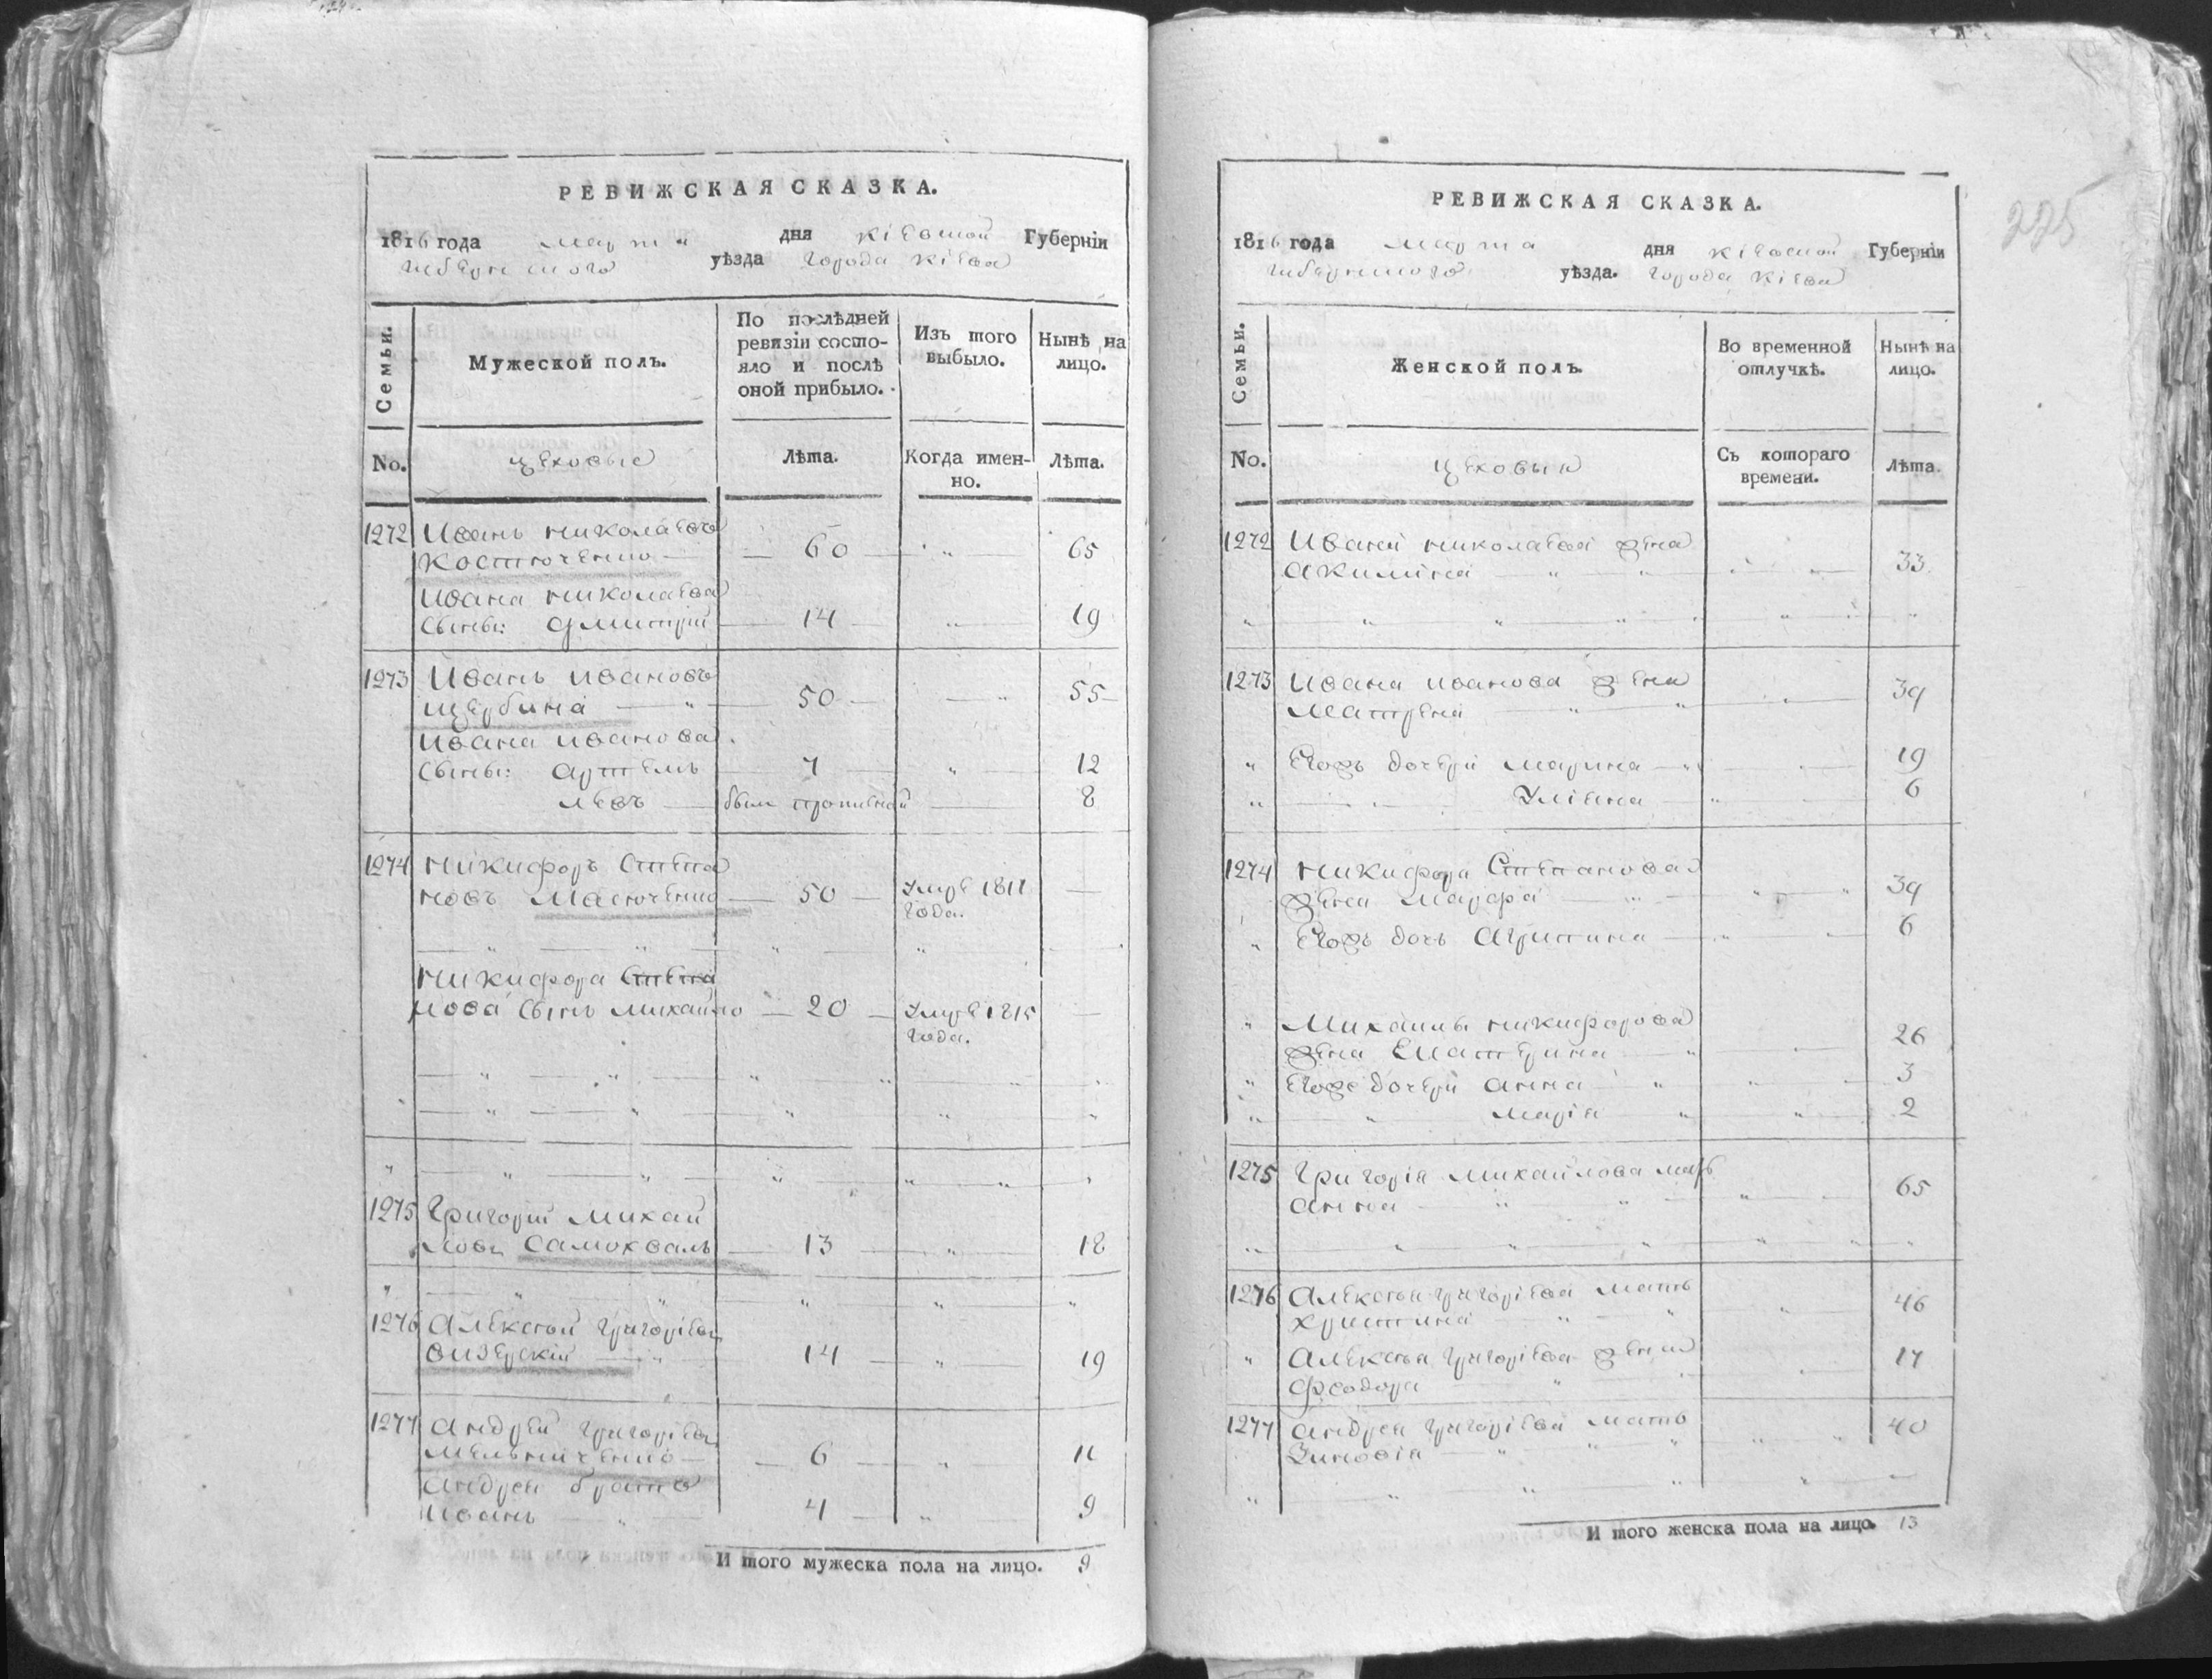 РЕВИЖСКАЯ СКАЗКА.
1816 года марта дня Кіевской Губерніи
губернского уѣзда города Кіева
Семьи.
Мужеской полъ.
По послѣдней
ревизіи состо-
яло и послѣ
оной прибыло.
Изъ того
выбыло.
Нынѣ на
лицо.
No.
цеховые
Лѣта.
Когда имен-
но.
Лѣта.
1272 Иванъ Николаевъ
Костюченко 60 65
Ивана Николаева
сыны: Дмитрій 14 19
1273 Иванъ Ивановъ
Щербина 50 55
Ивана Иванова
сыны: Артемъ 7 12
Левъ былъ 8
1274 Никифоръ Степа
новъ 50 Умре 1811
года.
Никифора Степа
нова сынъ Михайло 20 Умре 1815
года.
1275 Григорій Михай
ловъ Самохвалъ 13 18
1276 Алексѣй Григоріевъ
Визерскій 14 19
1277 Андрей Григоріевъ
Мельниченко 6 11
Андрея братъ
Иванъ 4 9
И того мужеска пола на лицо. 9
225
РЕВИЖСКАЯ СКАЗКА.
1816 года марта дня Кіевской Губерніи
губернского уѣзда. города Кіева
Семьи.
Женской полъ.
Во временной
отлучкѣ.
Нынѣ на
лицо.
No.
цеховыя
Съ котораго
времени.
Лѣта.
1272 Ивана Николаева жена
Акилина 33
1273 Ивана Иванова жена
Матрена 39
Егожъ дочери Марина 19
Уліяна 6
1274 Никифора Степанова
жена Марфа 39
Егожъ дочь Агрипина 6
Михайлы Никифорова
жена Екатерина 26
Егоже дочери Анна 3
Марія 2
1275 Григорія Михайлова мать
Анна 65
1276 Алексѣя Григоріева мать
Христина 46
Алексѣя Григоріева жена
Феодора 17
1277 Андрея Григоріева мать
Зиновія 40
И того женска пола на лицо. 13